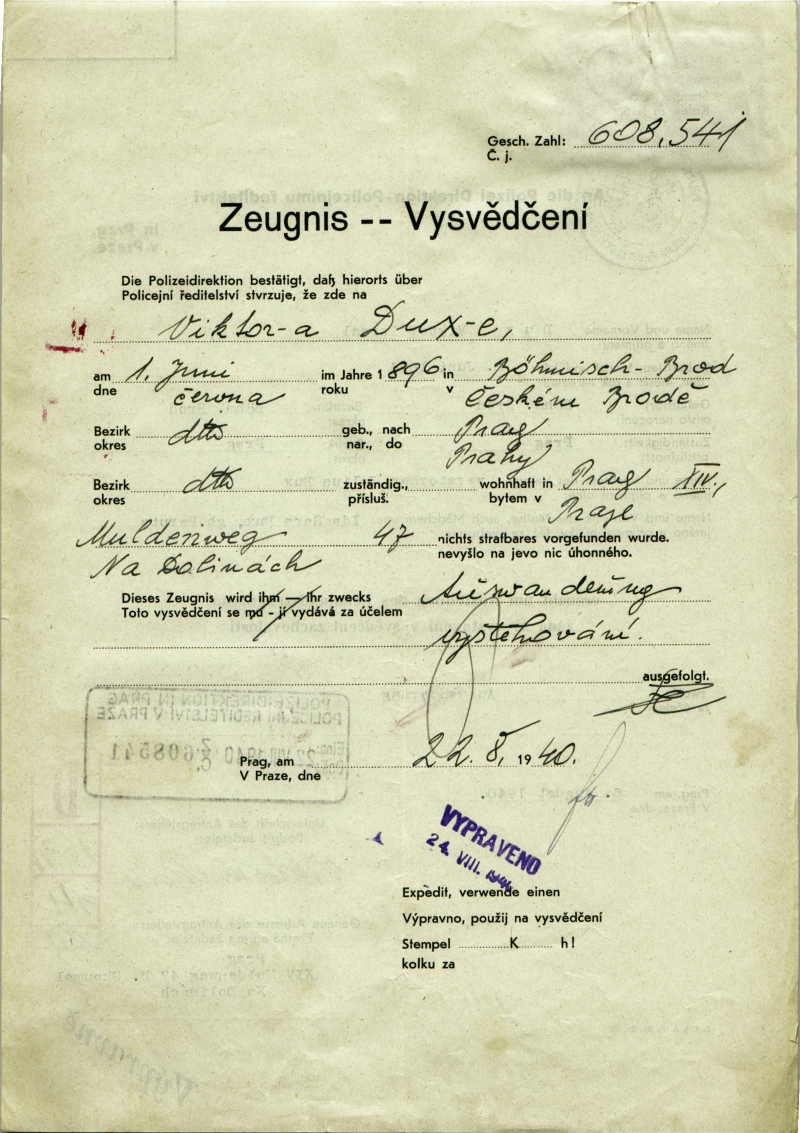 Gesch. Zahl: 608.541
Č. j.
Zeugnis -- Vysvědčení
Die Polizeidirektion bestätigt, daß hierorts über
Policejní ředitelství stvrzuje, že zde na
Viktor-a Dux-e,
am 1. Juni im Jahre 1896 in Böhmisch-Brod
dne června roku v Českém Brodě
Bezirk dtto geb., nach Prag
okres nar., do Prahy
Bezirk dtto zuständig., wohnhaft in Prag XIV.,
okres přísluš. bytem v Praze
Muldenweg 47 nichts strafbares vorgefunden wurde.
Na Dolinách nevyšlo na jevo nic úhonného.
Dieses Zeugnis wird ihm — Ihr zwecks Auswanderung
Toto vysvědčení se mu - jí vydává za účelem
vystěhování.
ausgefolgt.
Prag, am 22. 8. 1940.
V Praze, dne
VYPRAVENO
24. VIII.
Expedit, verwende einen
Výpravno, použij na vysvědčení
Stempel K h!
kolku za